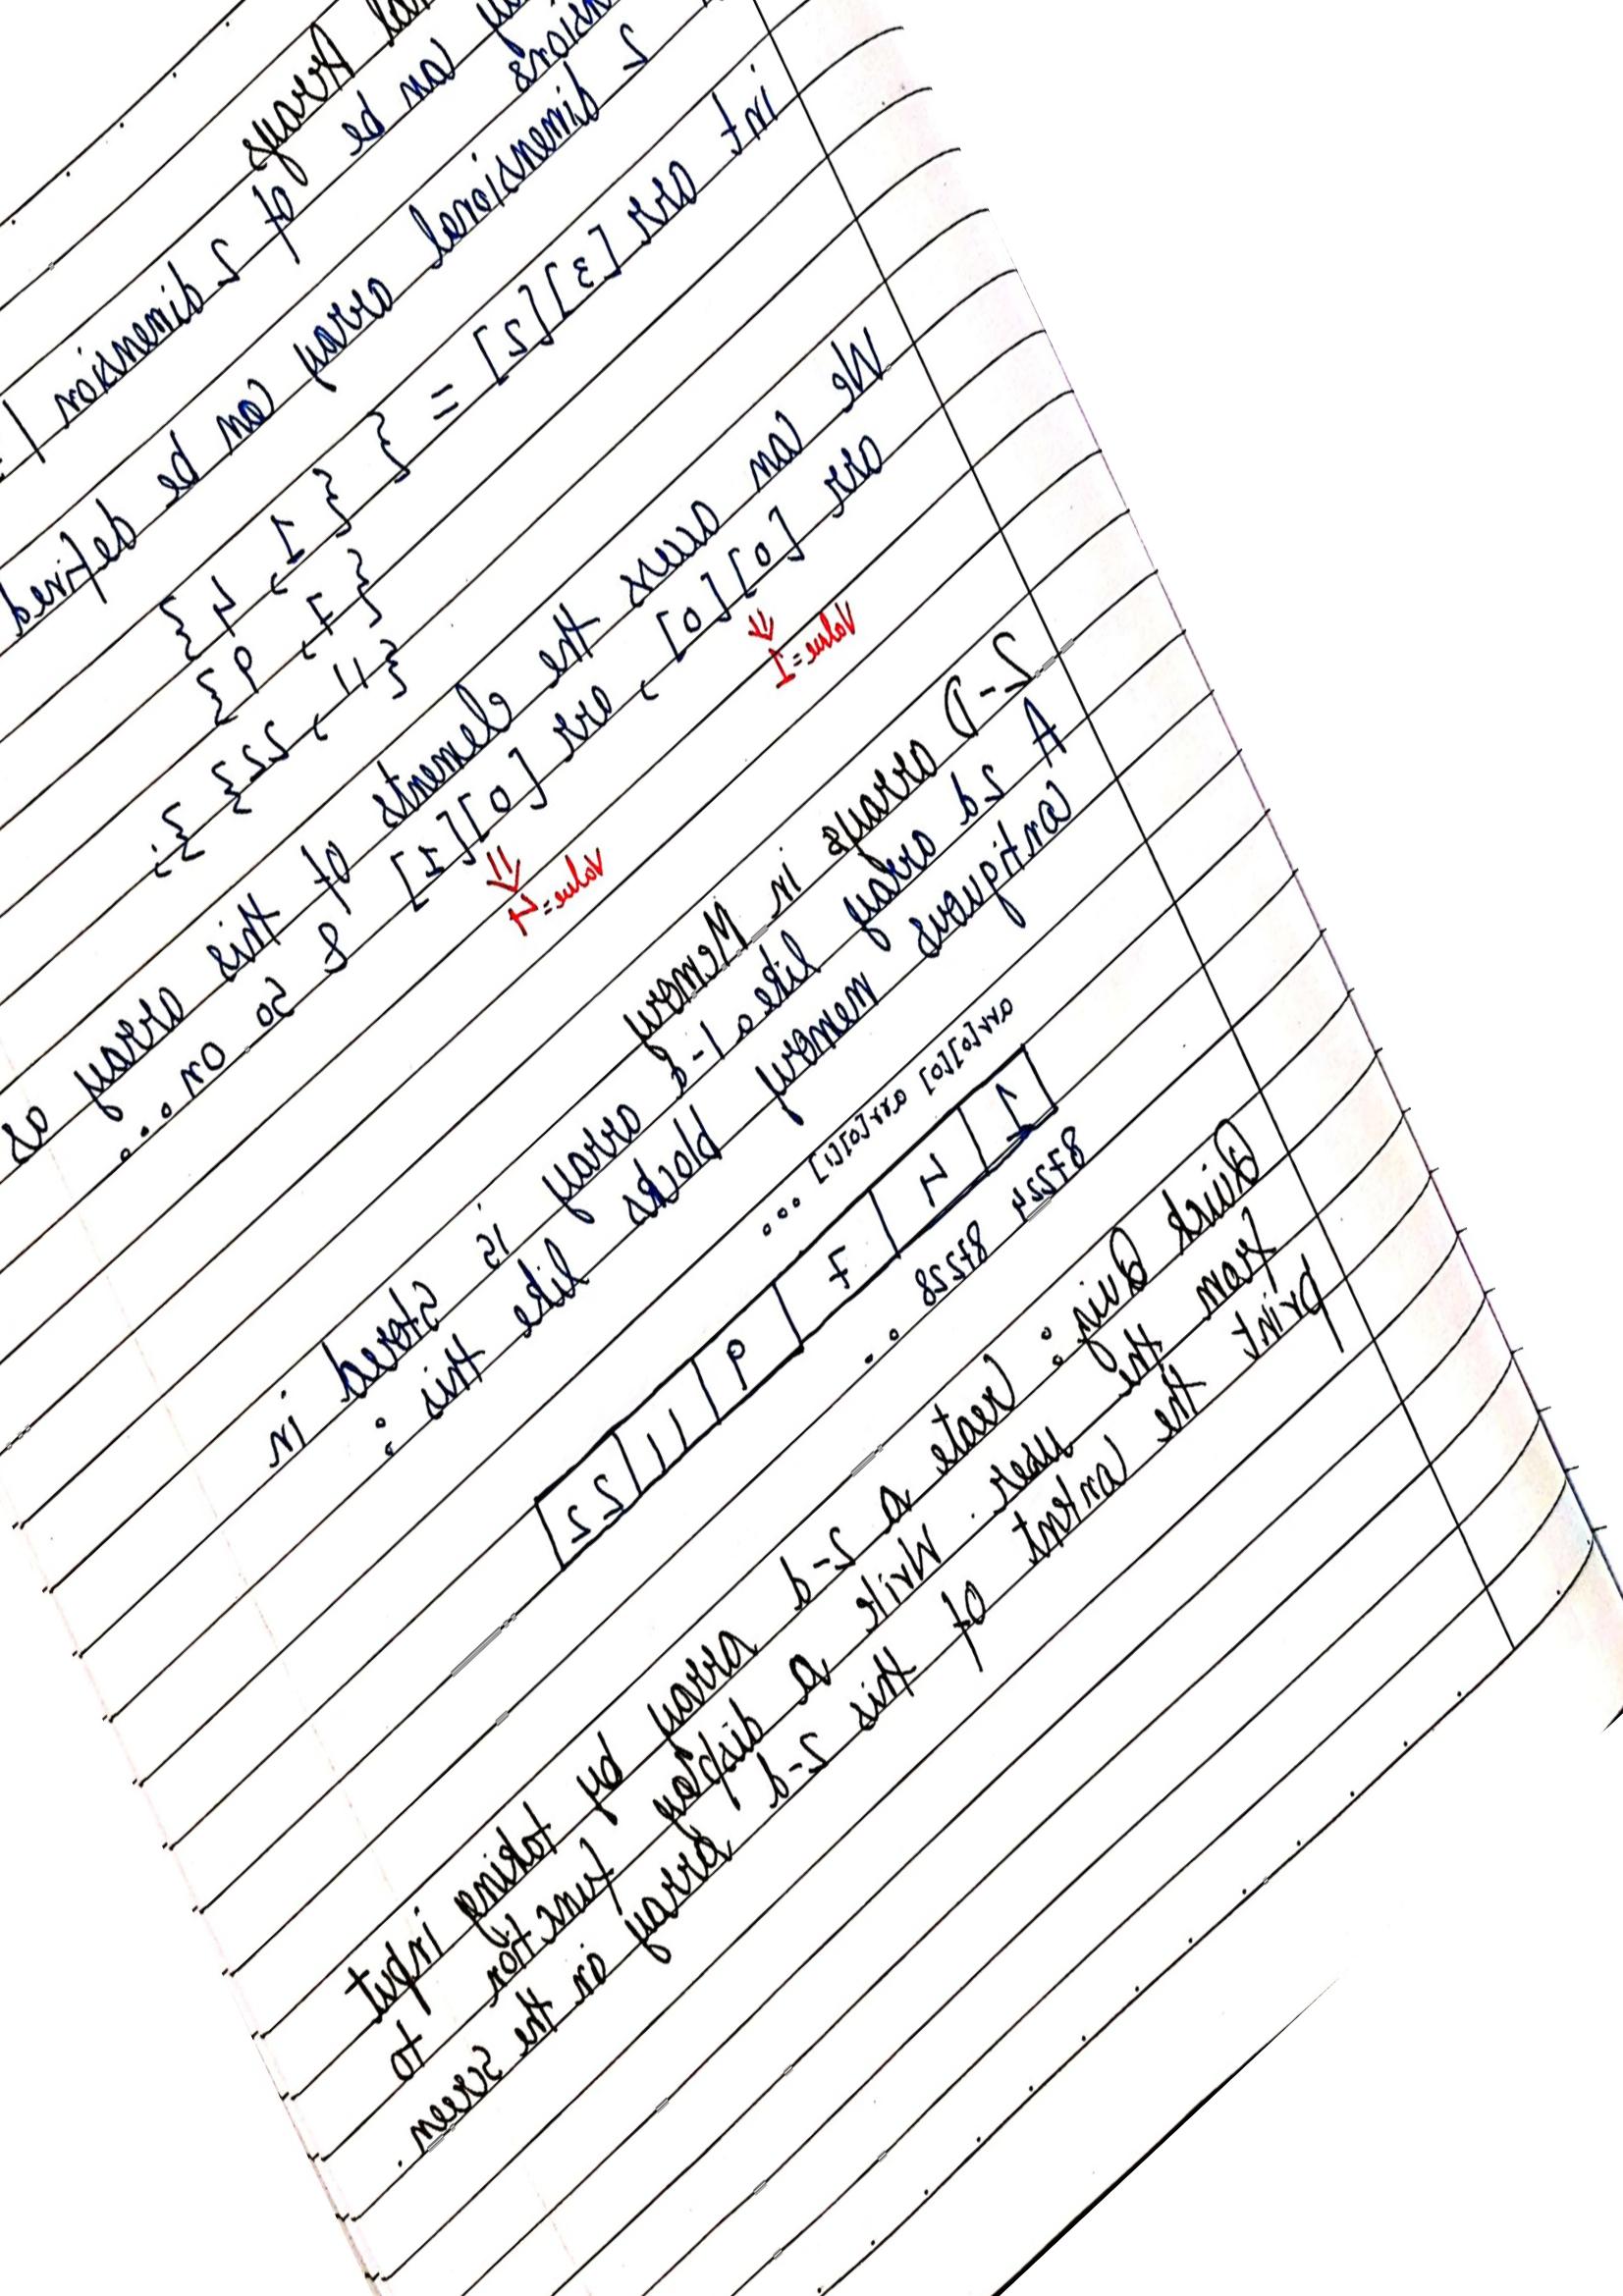 Arrays
can be of 2 dimension /
2 dimensional array can be defined
int arr [3][2] = { { 1, 4 }
{ 7, 9 }
{ 11, 22 } };
We can access the elements of this array as
arr [0][0], arr [0][1] & so on...
Value=1 Value=4
2-D arrays in Memory
A 2d array like a 1-d array is stored in
contiguous memory blocks like this :
arr[0][0] arr[0][1] ...
1 4 7 9 11 22
87224 87228 . .
Quick Quiz : Create a 2-d array by taking input
from the user. Write a display function to
print the content of this 2-d array on the screen.